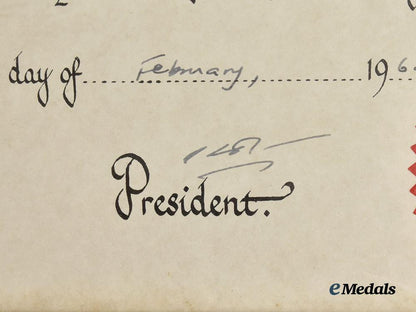 day of.....February,..........196
President.
eMedals